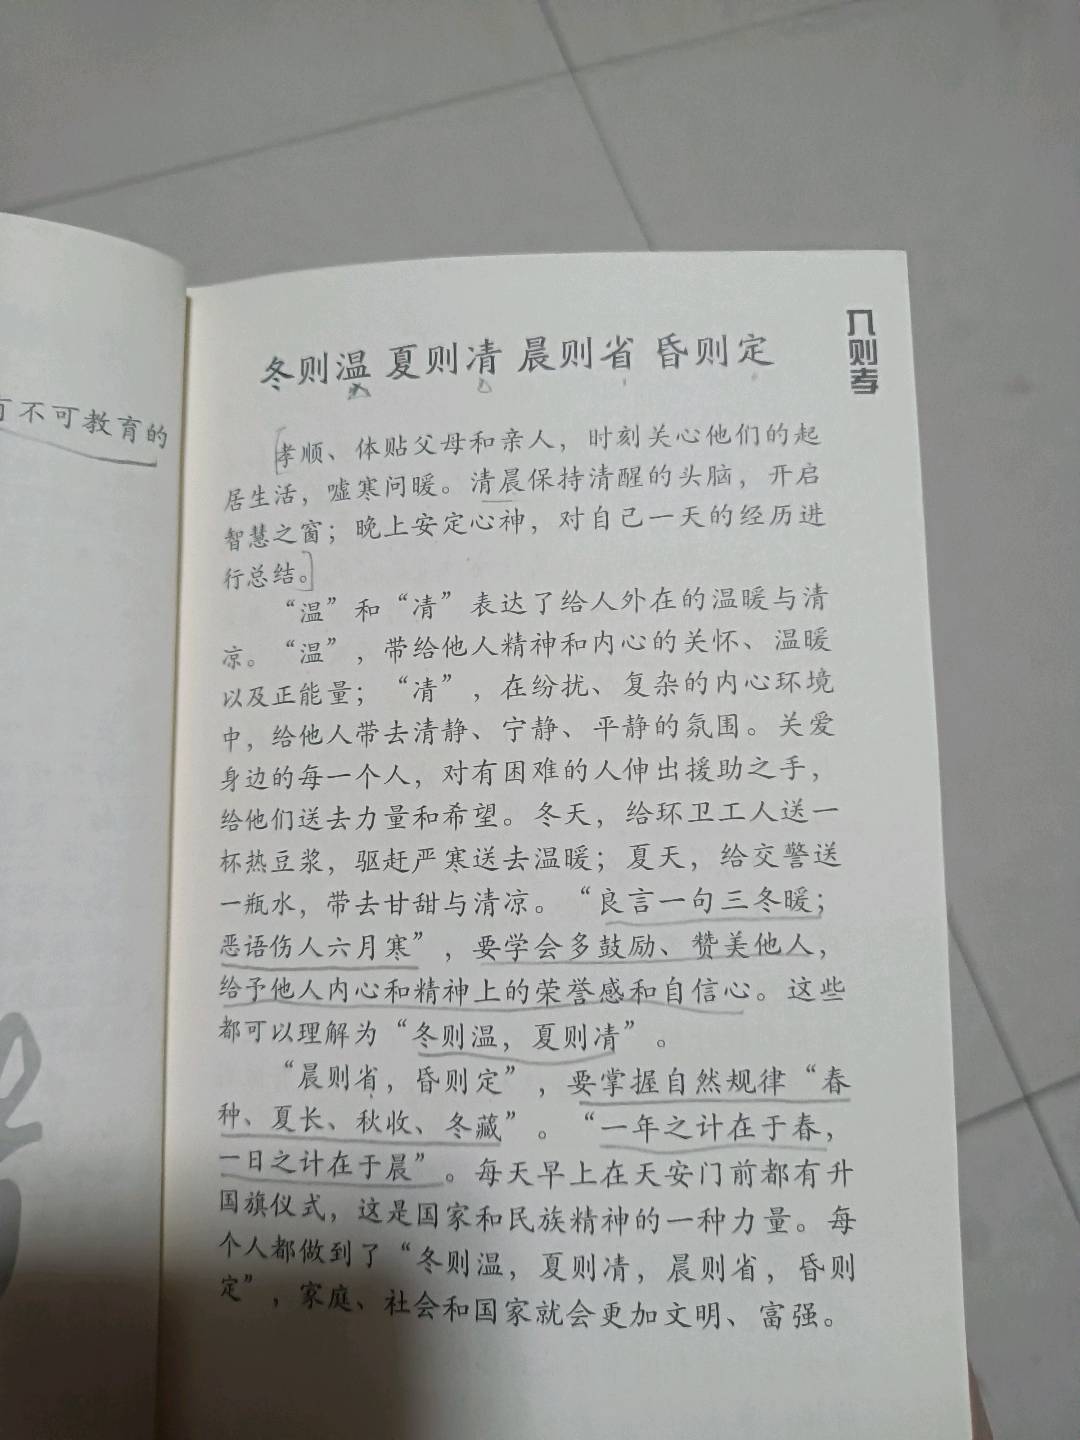 不可教育的
入则孝
冬则温 夏则凊 晨则省 昏则定
孝顺、体贴父母和亲人，时刻关心他们的起
居生活，嘘寒问暖。清晨保持清醒的头脑，开启
智慧之窗；晚上安定心神，对自己一天的经历进
行总结。
“温”和“凊”表达了给人外在的温暖与清
凉。“温”，带给他人精神和内心的关怀、温暖
以及正能量；“凊”，在纷扰、复杂的内心环境
中，给他人带去清静、宁静、平静的氛围。关爱
身边的每一个人，对有困难的人伸出援助之手，
给他们送去力量和希望。冬天，给环卫工人送一
杯热豆浆，驱赶严寒送去温暖；夏天，给交警送
一瓶水，带去甘甜与清凉。“良言一句三冬暖；
恶语伤人六月寒”，要学会多鼓励、赞美他人，
给予他人内心和精神上的荣誉感和自信心。这些
都可以理解为“冬则温，夏则凊”。
“晨则省，昏则定”，要掌握自然规律“春
种、夏长、秋收、冬藏”。“一年之计在于春，
一日之计在于晨”。每天早上在天安门前都有升
国旗仪式，这是国家和民族精神的一种力量。每
个人都做到了“冬则温，夏则凊，晨则省，昏则
定”，家庭、社会和国家就会更加文明、富强。